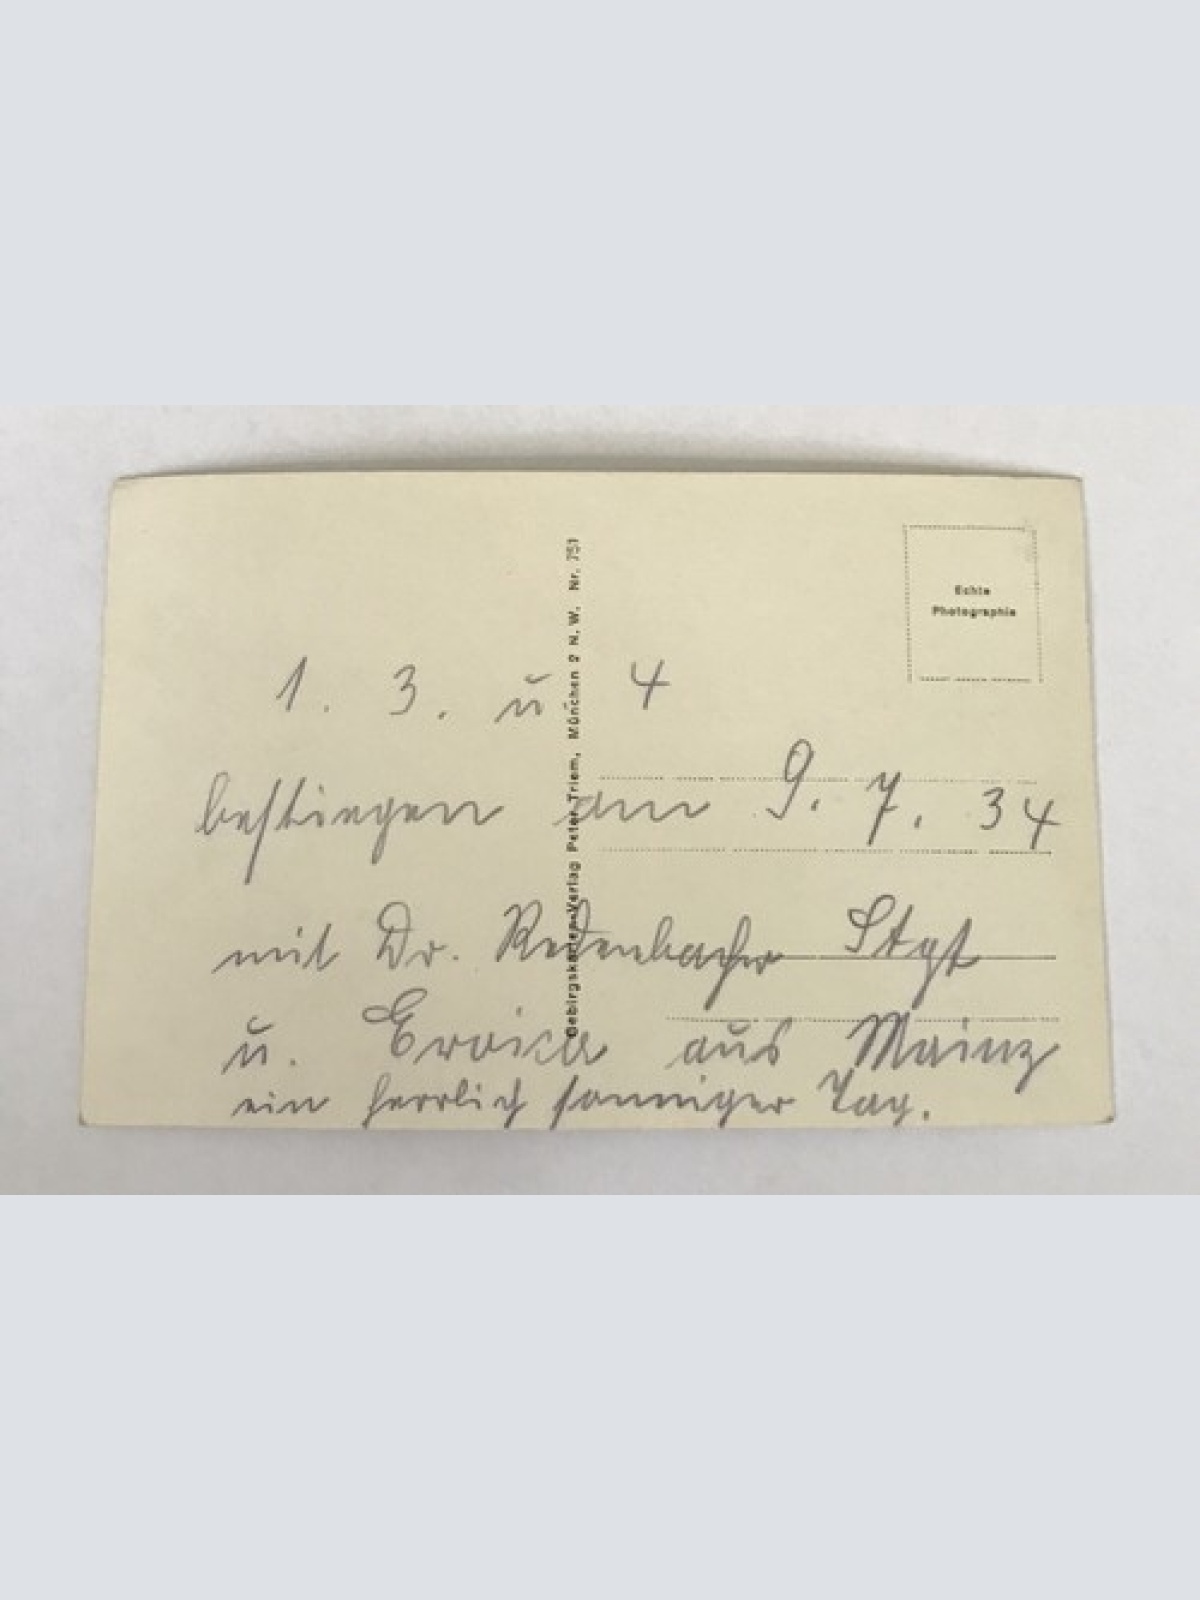 Echte
Photographie
Gebirgskarten-Verlag Peter Triem, München 2 N. W. Nr. 751
1. 3. u 4
bestiegen am 9. 7. 34
mit Dr. Redenbacher Stgt
u. aus Mainz
ein herrlich sonniger Tag.